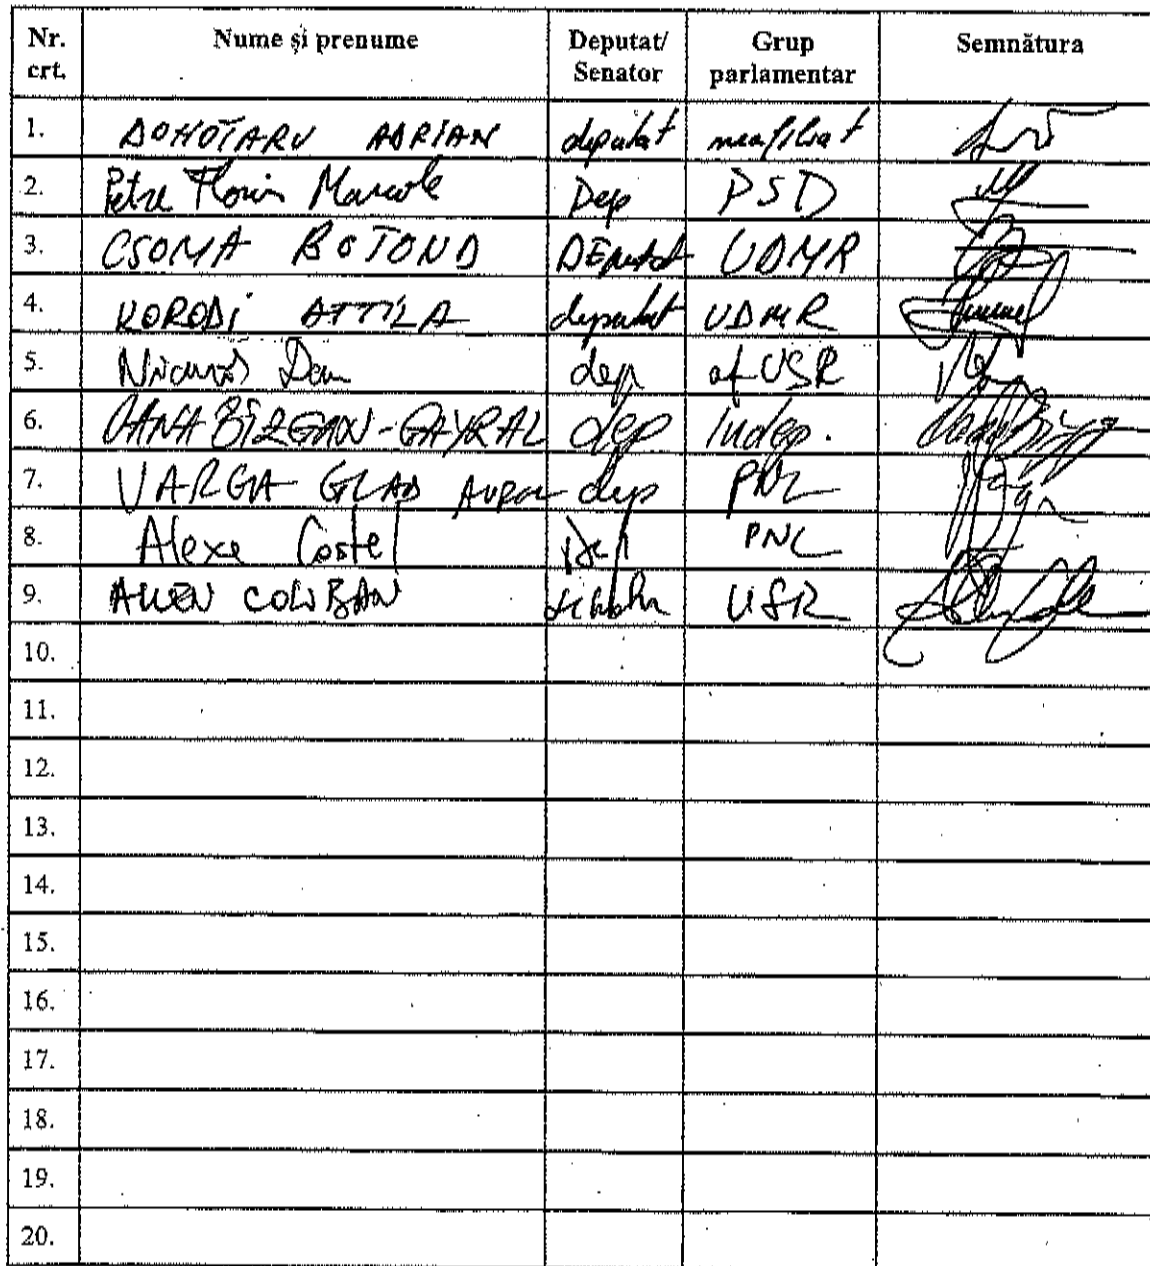 Nr. crt. Nume și prenume Deputat/ Senator Grup parlamentar Semnătura
1. DOHOTARU ADRIAN deputat neafiliat
2. Petre Florin Manole Dep PSD
3. CSOMA BOTOND DEputat UDMR
4. KORODI ATTILA deputat UDMR
5. Dan dep USR
6. OANA BÎZGAN-GAYRAL dep Indep.
7. VARGA GLAD AUREL dep PNL
8. Alexe Costel Dep PNL
9. ALLEN COLIBAN USR
10.
11.
12.
13.
14.
15.
16.
17.
18.
19.
20.